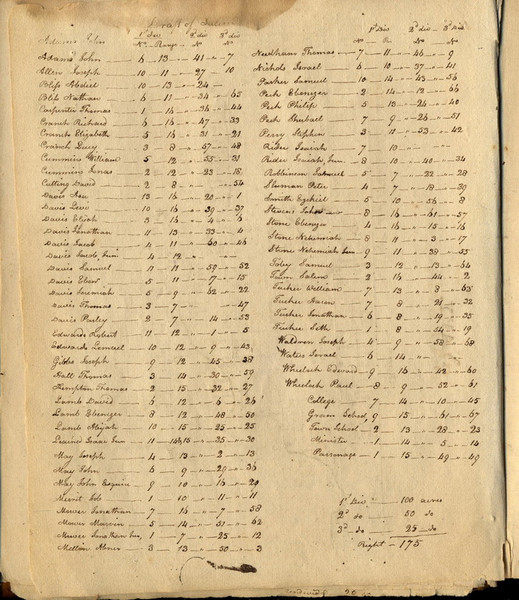 Draft of
1st Div 2d div 3d div
No Range No No
Adams John 6 13 41 7
Allen Joseph 10 11 27 10
Bliss Abdiel 10 13 24
Bliss Nathan 6 11 34 65
Carpenter Thomas 1 16 36 44
Cranch Richard 6 16 47 33
Cranch Elizabeth 5 16 31 21
Cranch Lucy 3 8 57 48
Cummins William 5 12 55 31
Cummins Jonas 2 12 23 18
Cutting David 2 8 54
Davis 13 16 20 1
Davis Levi 10 16 39 37
Davis Elijah 3 16 4 6
Davis Jonathan 11 13 33 4
Davis Jacob 4 11 60 46
Davis Jacob Jun 4 12
Davis Samuel 11 11 59 52
Davis Eben 5 11 17 15
Davis Jeremiah 5 9 62 22
Davis Thomas 3 7 47
Davis Purley 8 7 14 53
Edwards Robert 11 12 1 5
Edwards Lemuel 10 12 9 43
Gibbs Joseph 9 12 45 38
Hall Thomas 3 14 30 59
Kempton Thomas 2 15 32 27
Lamb David 6 12 6 26
Lamb Ebenezer 8 12 48 50
Lamb Alijah 10 15 25 25
Learned Isaac Jun 11 14&15 35 30
May Joseph 4 13 2 13
May John 6 9 29 36
May John Esquire 9 10 16 20
Merrit Job 1 10 11 11
Mower Jonathan 7 16 7 58
Mower Marvin 5 14 51 62
Mower Jonathan 1 7 25 12
Mellen Abner 3 13 50 3
1st Div 2d div 3d Div
No R No No
Needham Thomas 7 11 46 9
Nichols Israel 6 10 37 41
Parker Samuel 10 14 43 56
Peck Ebenezer 2 14 12 66
Peck Philip 5 13 26 40
Peck Shubael 7 9 26 51
Perry Stephen 3 11 53 42
Rider Isaiah 7 10
Rider Isaiah Jun 8 10 40 34
Robbinson Samuel 5 7 22 28
Sluman Peter 4 7 18 39
Smith Ezekiel 5 10 56 8
Stevens John 8 16 61 57
Stone Ebenezer 4 16 15 16
Stone Nehemiah 8 11 3 17
Stone Nehemiah Jun 9 11 38 55
Tobey Samuel 3 12 13 64
Town Salem 2 16 44 2
Tucker William 7 13 8 63
Tucker Aaron 7 8 21 32
Tucker Jonathan 6 8 19 35
Tucker Seth 1 8 54 19
Waldron Joseph 4 9 58 68
Waters Israel 6 14
Wheelock Edward 9 16 42 60
Wheelock Paul 8 9 52 61
College 7 14 10 45
Gram School 9 15 61 67
Town School 2 13 28 23
Minister 1 14 5 14
Parsonage 1 15 49 49
1st Div 100 acres
2d do 50 do
3d do 25 do
Right 175